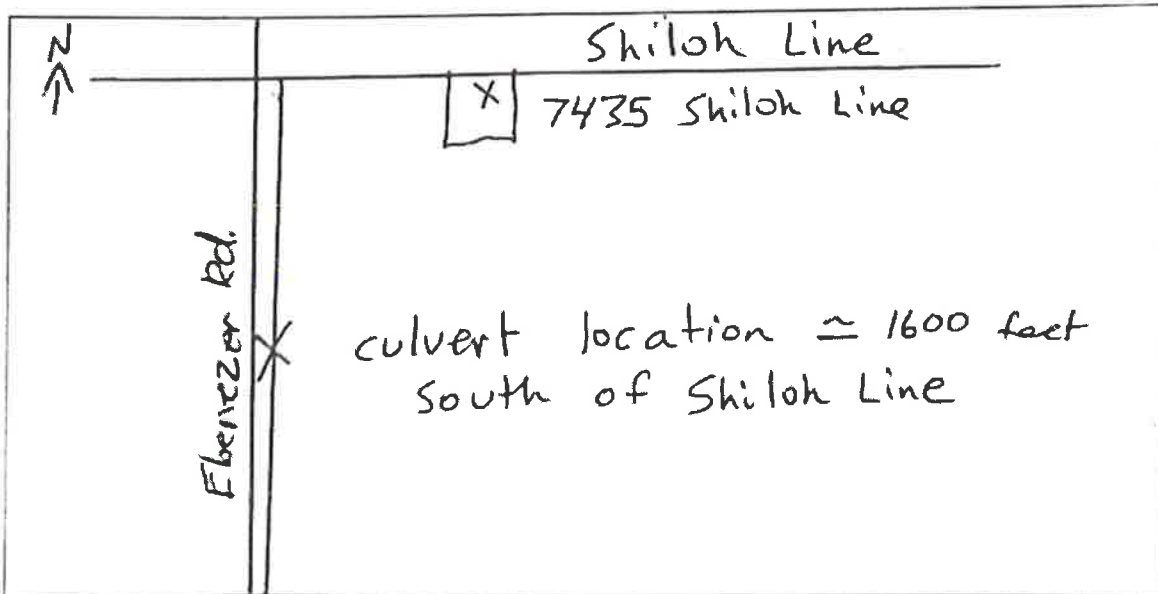 N
Shiloh Line
X
7435 Shiloh Line
Ebenezer Rd.
X
culvert location ≃ 1600 feet
South of Shiloh Line